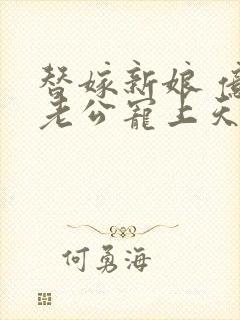 替嫁新娘
老公宠上天
何勇海